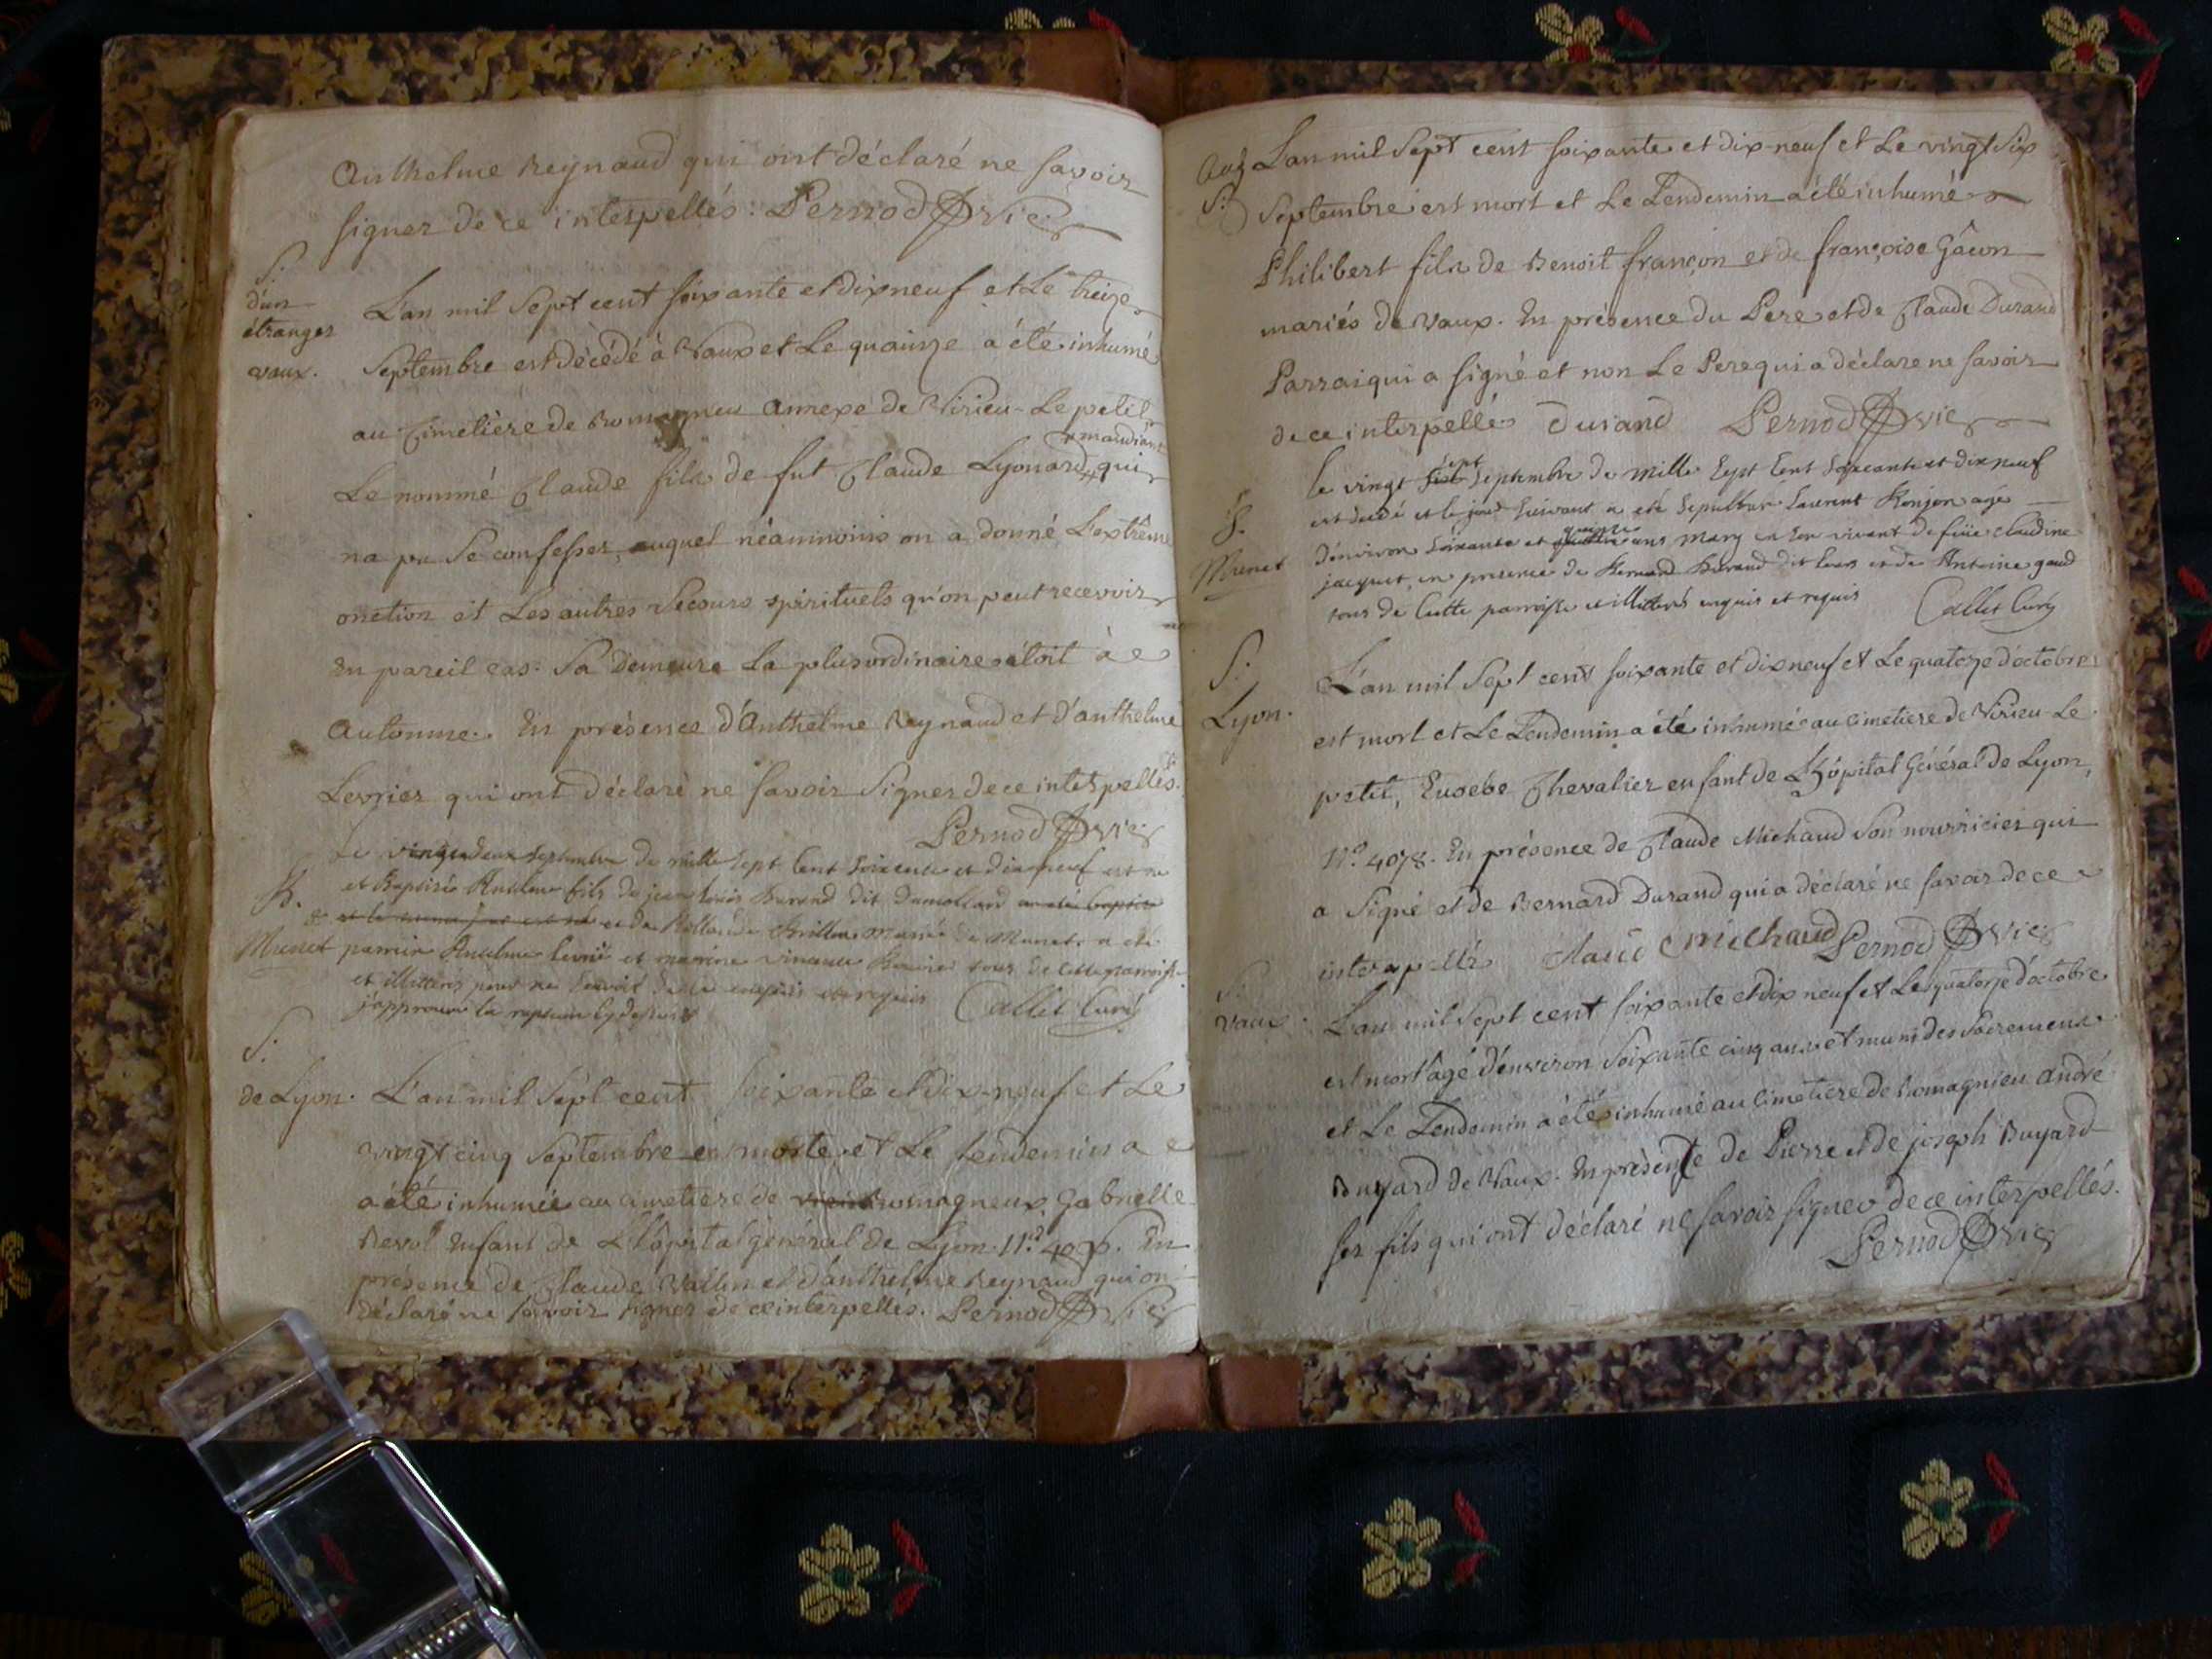 Anthelme Reynaud qui ont déclaré ne savoir
signer de ce interpellés. Pernod vic
S.
d'un
étranger
vaux.
L'an mil sept cent soixante et dixneuf et Le treize
Septembre est décédé à Vaux et Le quainze a été inhumé
au Cimetière de Romagneu annexe de Virieu-Le petit
mandiant
Le nommé Claude fils de fut Claude Lyonard, qui
na pu Se confesser, auquel néanmoins on a donné L'extrême
onction et Les autres Secours spirituels qu'on peut recevoir
En pareil cas. Sa Demeure La plus ordinaire étoit à
Autonne. En présence d'Anthelme Reynaud et d'anthelme
Levrier qui ont déclaré ne savoir Signer de ce interpellés.
Pernod vic
B.
Munet
Le vingt deux Septembre de mille Sept Cent Soixente et Dix neuf est né
et Baptisé Anthelme fils de jean Louis Durand dit Dumollard a été baptisé
et de Munet a été
parrain Anthelme levrié et marraine tous de Cette paroisse
et illitterés pour ne Scavoir de ce enquis et requis Callet Curé
j'approuve la
S.
de Lyon.
L'an mil Sept cent soixante et dix-neuf et Le
vingt cinq Septembre est morte et Le lendemin a
a été inhumée au cimetiere de Romagneux Gabrielle
Revol Enfant de L'Hôpital général de Lyon. N.o En
présence de Claude Vallin et d'anthelme Reynaud qui on
déclaré ne savoir signer de ce interpellés. Pernod vic
S.
L'an mil Sept cent soixante et dix-neuf et Le vingt Six
Septembre est mort et Le Lendemin a été inhumé
Philibert fils de Benoit françon et de françoise Gâcon
mariés de Vaux. En présence du Pere et de Claude Durand
Parrai qui a signé et non Le Pere qui a déclaré ne savoir
de ce interpellé. Durand Pernod vic
S.
Munet
sept
le vingt Septembre de Mille Sept Cent Soixante et dix neuf
est decédé et le jour Suivant a eté Sepulturé Laurent Konjon agé
quinze
d'environ Soixante et quattre ans mary en son vivant de füe claudine
jacquet, en presence de Bernard Durand dit et de Antoine gaud
tous de Cette parroisse et illitterés enquis et requis Callet Curé
S.
Lyon.
L'an mil Sept cent soixante et dixneuf et Le quatorze d'octobre
est mort et Le Lendemin a été inhumé au cimetiere de Virieu-Le
petit, Eusebe Chevalier enfant de L'hôpital Général de Lyon,
N.o 4078. En présence de Claude Michaud Son nourricier qui
a Signé et de Bernard Durand qui a déclaré ne savoir de ce
interpellé Claude Michaud Pernod vic
S.
Vaux
L'an mil Sept cent soixante et dix neuf et Le quatorze d'octobre
est mort âgé d'environ Soixante cinq ans et muni des Sacremens
et Le Lendemin a été inhumé au Cimetiere de Romagnieu André
Buyard de Vaux. En présence de Pierre et de joseph Buyard
ses fils qui ont déclaré ne savoir signer de ce interpellés.
Pernod vic